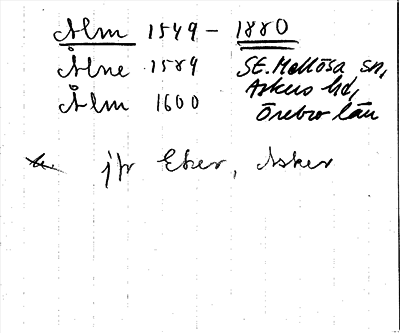 Ålm 1549 - 1880
Ålne 1589 St. Mellösa sn,
Ålm 1600 Askers hd,
Örebro län
jfr Eker, Asker